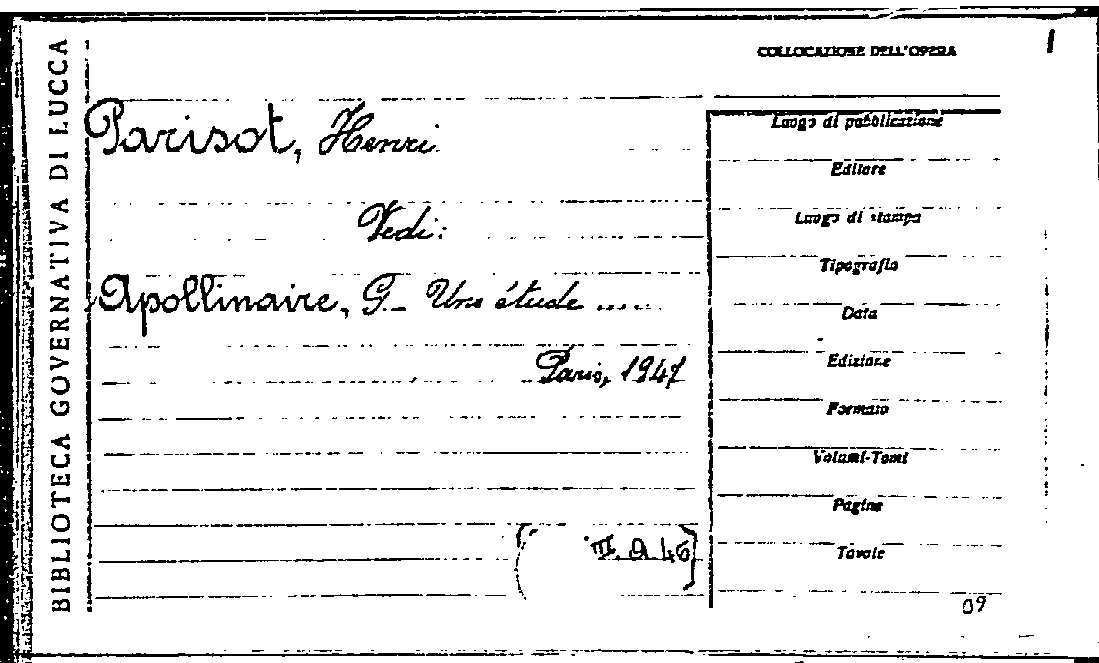 BIBLIOTECA GOVERNATIVA DI LUCCA
COLLOCAZIONE DELL'OPERA
Parisot, Henri
Vedi:
Apollinaire, G. - Une étude .....
Paris, 1947
Luogo di pubblicazione
Editore
Luogo di stampa
Tipografia
Data
Edizione
Formato
Volumi-Tomi
Pagine
Tavole
09